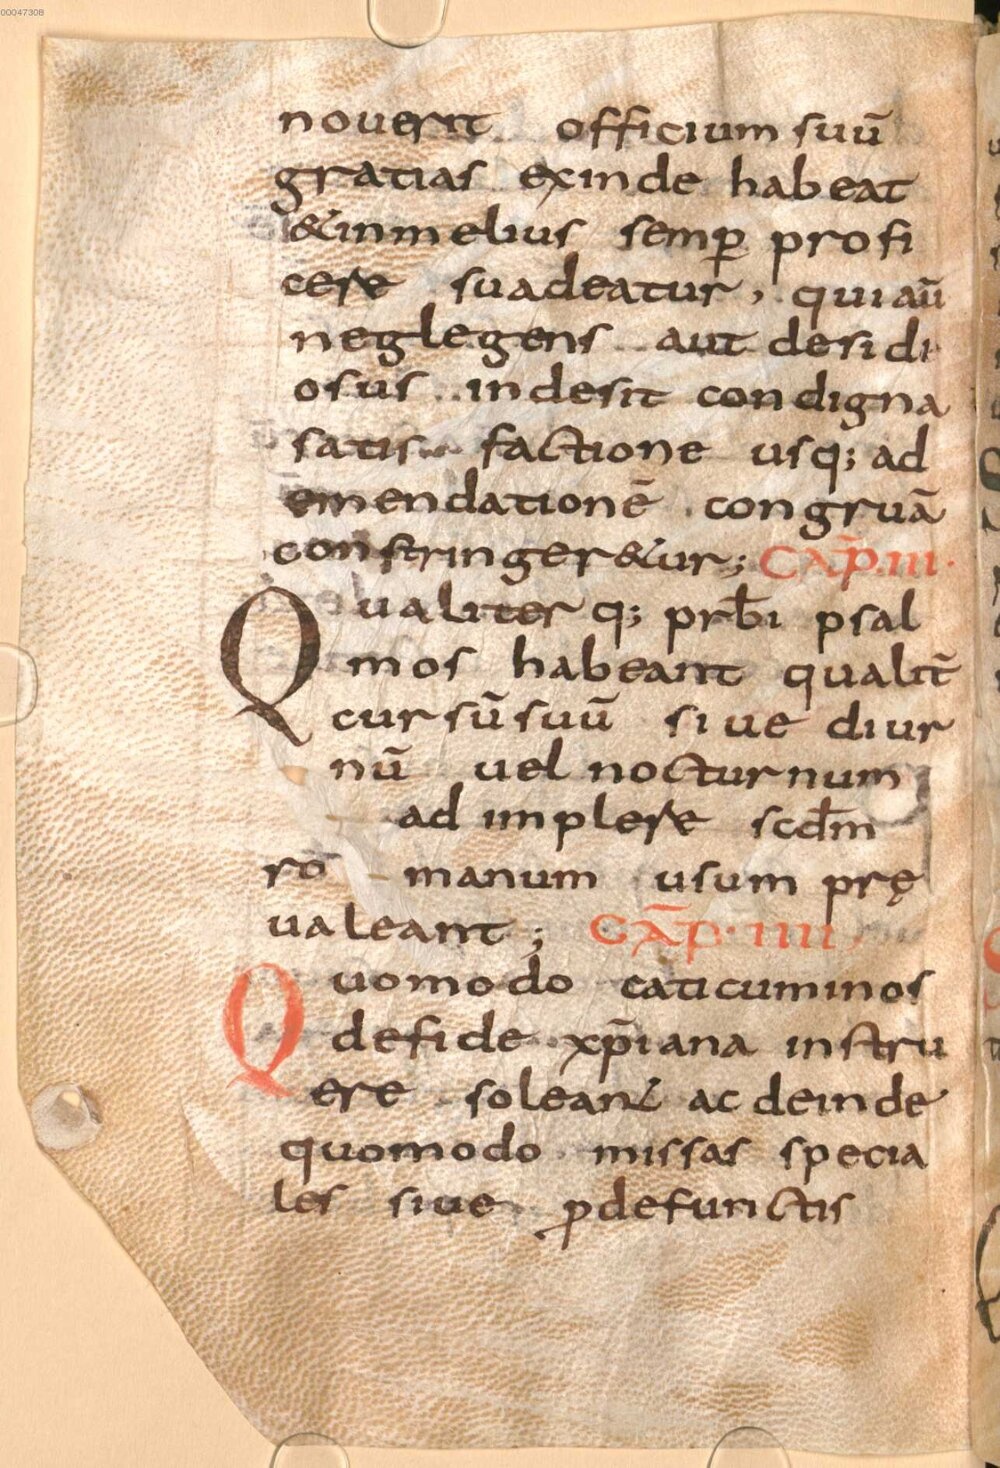 00047308
nouerit officium suū
gratias exinde habeat
&inmelius semꝑ profi
cere suadeatur, quiaū
neglegens aut desidi
osus indesit condigna
satis factione usq; ad
emendationē congruā
constringer&ur; CAP̄.III.
Qualiter q; prb̄i psal
mos habeant qualit̄
cursū suū siue diur
nū uel nocturnum
ad implere scdm̄
ro manum usum prę
ualeant; CAP̄.IIII.
Quomodo caticuminos
defide xp̄iana instru
ere soleant ac deinde
quomodo missas specia
les siue ꝓdefunctis